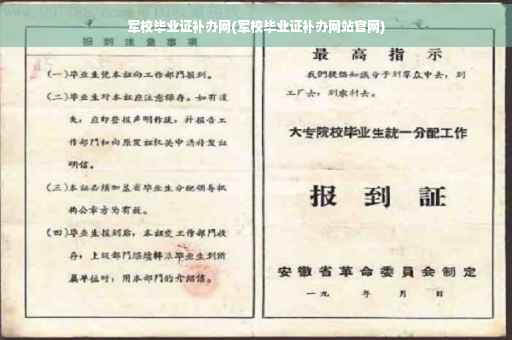 军校毕业证补办网(军校毕业证补办网站官网)
报到注意事项
(一)毕业生凭本证向工作部门报到。
(二)毕业生对本证应注意保存。如有遗
失,应即登报声明作废,并报告工
作部门和向原发证机关申请补发证
明信。
(三)本证必须加盖省毕业生分配领导机
构公章方为有效。
(四)毕业生报到后,本证交工作部门收
存;上级部门继续转派毕业生到所
属单位时,用本部门的介绍信。
最高指示
我们提倡知识分子到群众中去,到
工厂去,到农村去。
大专院校毕业生统一分配工作
报到証
安徽省革命委員会制定
一九 年 月 日